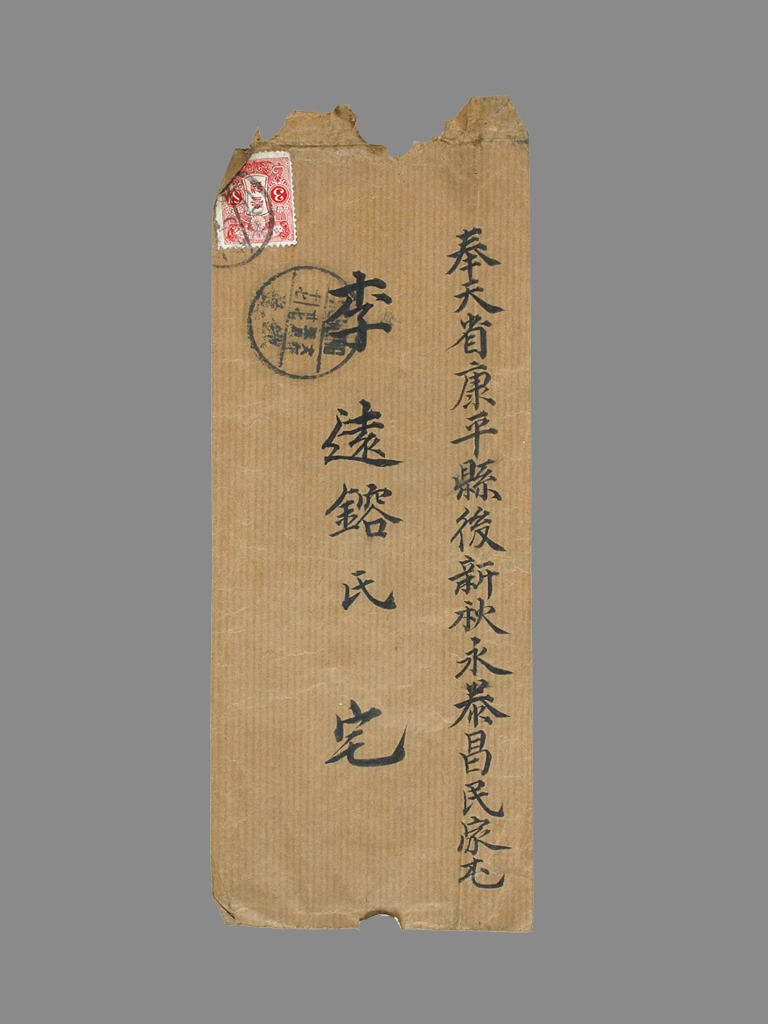 奉天省康平縣後新秋永泰昌民家屯
李遠鎔氏 宅
3